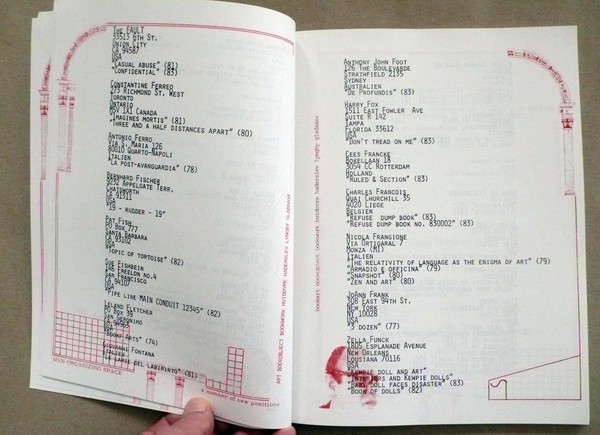 THE FAULT
33513 6TH ST.
UNION CITY
CA 94587
USA
"CASUAL ABUSE" (81)
"CONFIDENTIAL" (83)
CONSTANTINE FERREO
273 RICHMOND ST. WEST
TORONTO
ONTARIO
M5V 1X1 CANADA
"IMAGINES MORTIS" (81)
"THREE AND A HALF DISTANCES APART" (80)
ANTONIO FERRO
VIA S. MARIA 126
80010 QUARTO-NAPOLI
ITALIEN
"LA POST-AVANGUARDIA" (78)
BERNHARD FISCHER
9232 APPELGATE TERR.
CHATSWORTH
CA 91311
USA
"19 - RUDDER - 19"
FAT FISH
PO BOX 777
SANTA BARBARA
CA 93102
USA
"TOPIC OF TORTOISE" (82)
SUE FISHBEIN
246 FREELON NO.4
SAN FRANCISCO
CA 94107
USA
"PIPE LINE MAIN CONDUIT 12345" (82)
LELAND FLETCHER
PO BOX 39
SAN GERONIMO
USA
(74)
GIOVANNI FONTANA
ITALIEN
"LE LARIE DEL LABIRINTO" (81)
MEN ORGANIZING SPACE
a number of new positions
ART BOOKOBJECT BOOKWORK HVIDOVRE HADERSLEV LYNGBY GLADSAXE
ANTHONY JOHN FOOT
126 THE BOULEVARDE
STRATHFIELD 2135
SYDNEY
AUSTRALIEN
"DE PROFUNDIS" (83)
HARRY FOX
1511 EAST FOWLER AVE
SUITE R 142
TAMPA
FLORIDA 33612
USA
"DON'T TREAD ON ME" (83)
CEES FRANCKE
BOKELLAAN 18
3054 CC ROTTERDAM
HOLLAND
"RULED & SECTION" (83)
CHARLES FRANCOIS
QUAI CHURCHILL 35
4020 LIEGE
BELGIEN
"REFUSE DUMP BOOK" (83)
"REFUSE DUMP BOOK NO. 830002" (83)
NICOLA FRANGIONE
VIA ORTIGARAL 7
MONZA (MI)
ITALIEN
"THE RELATIVITY OF LANGUAGE AS THE ENIGMA OF ART" (79)
"ARMADIO E OFFICINA" (79)
"SNAPSHOT" (80)
"ZEN AND ART" (80)
JOANN FRANK
308 EAST 94TH ST.
NEW YORK
NY 10028
USA
"3 DOZEN" (77)
ZELLA FUNCK
1805 ESPLANADE AVENUE
NEW ORLEANS
LOUTIANA 70116
USA
"KEWPIE DOLL AND ART"
"INTERIORS AND KEWPIE DOLLS"
"BABY DOLL FACES DISASTER" (83)
"BOOK OF DOLLS" (82)